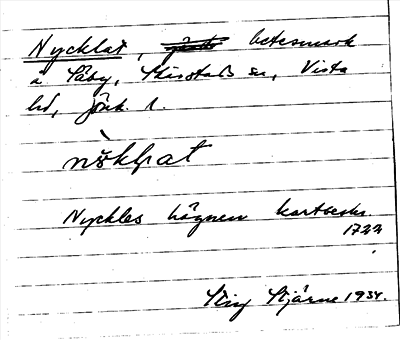 Nycklat, betesmark
å Säby, Skärstads sn, Vista
hd, Jönk. l.
nökl̥at
Nyckles hägnen kartbeskr.
1722
Stig Stjärne 1934.